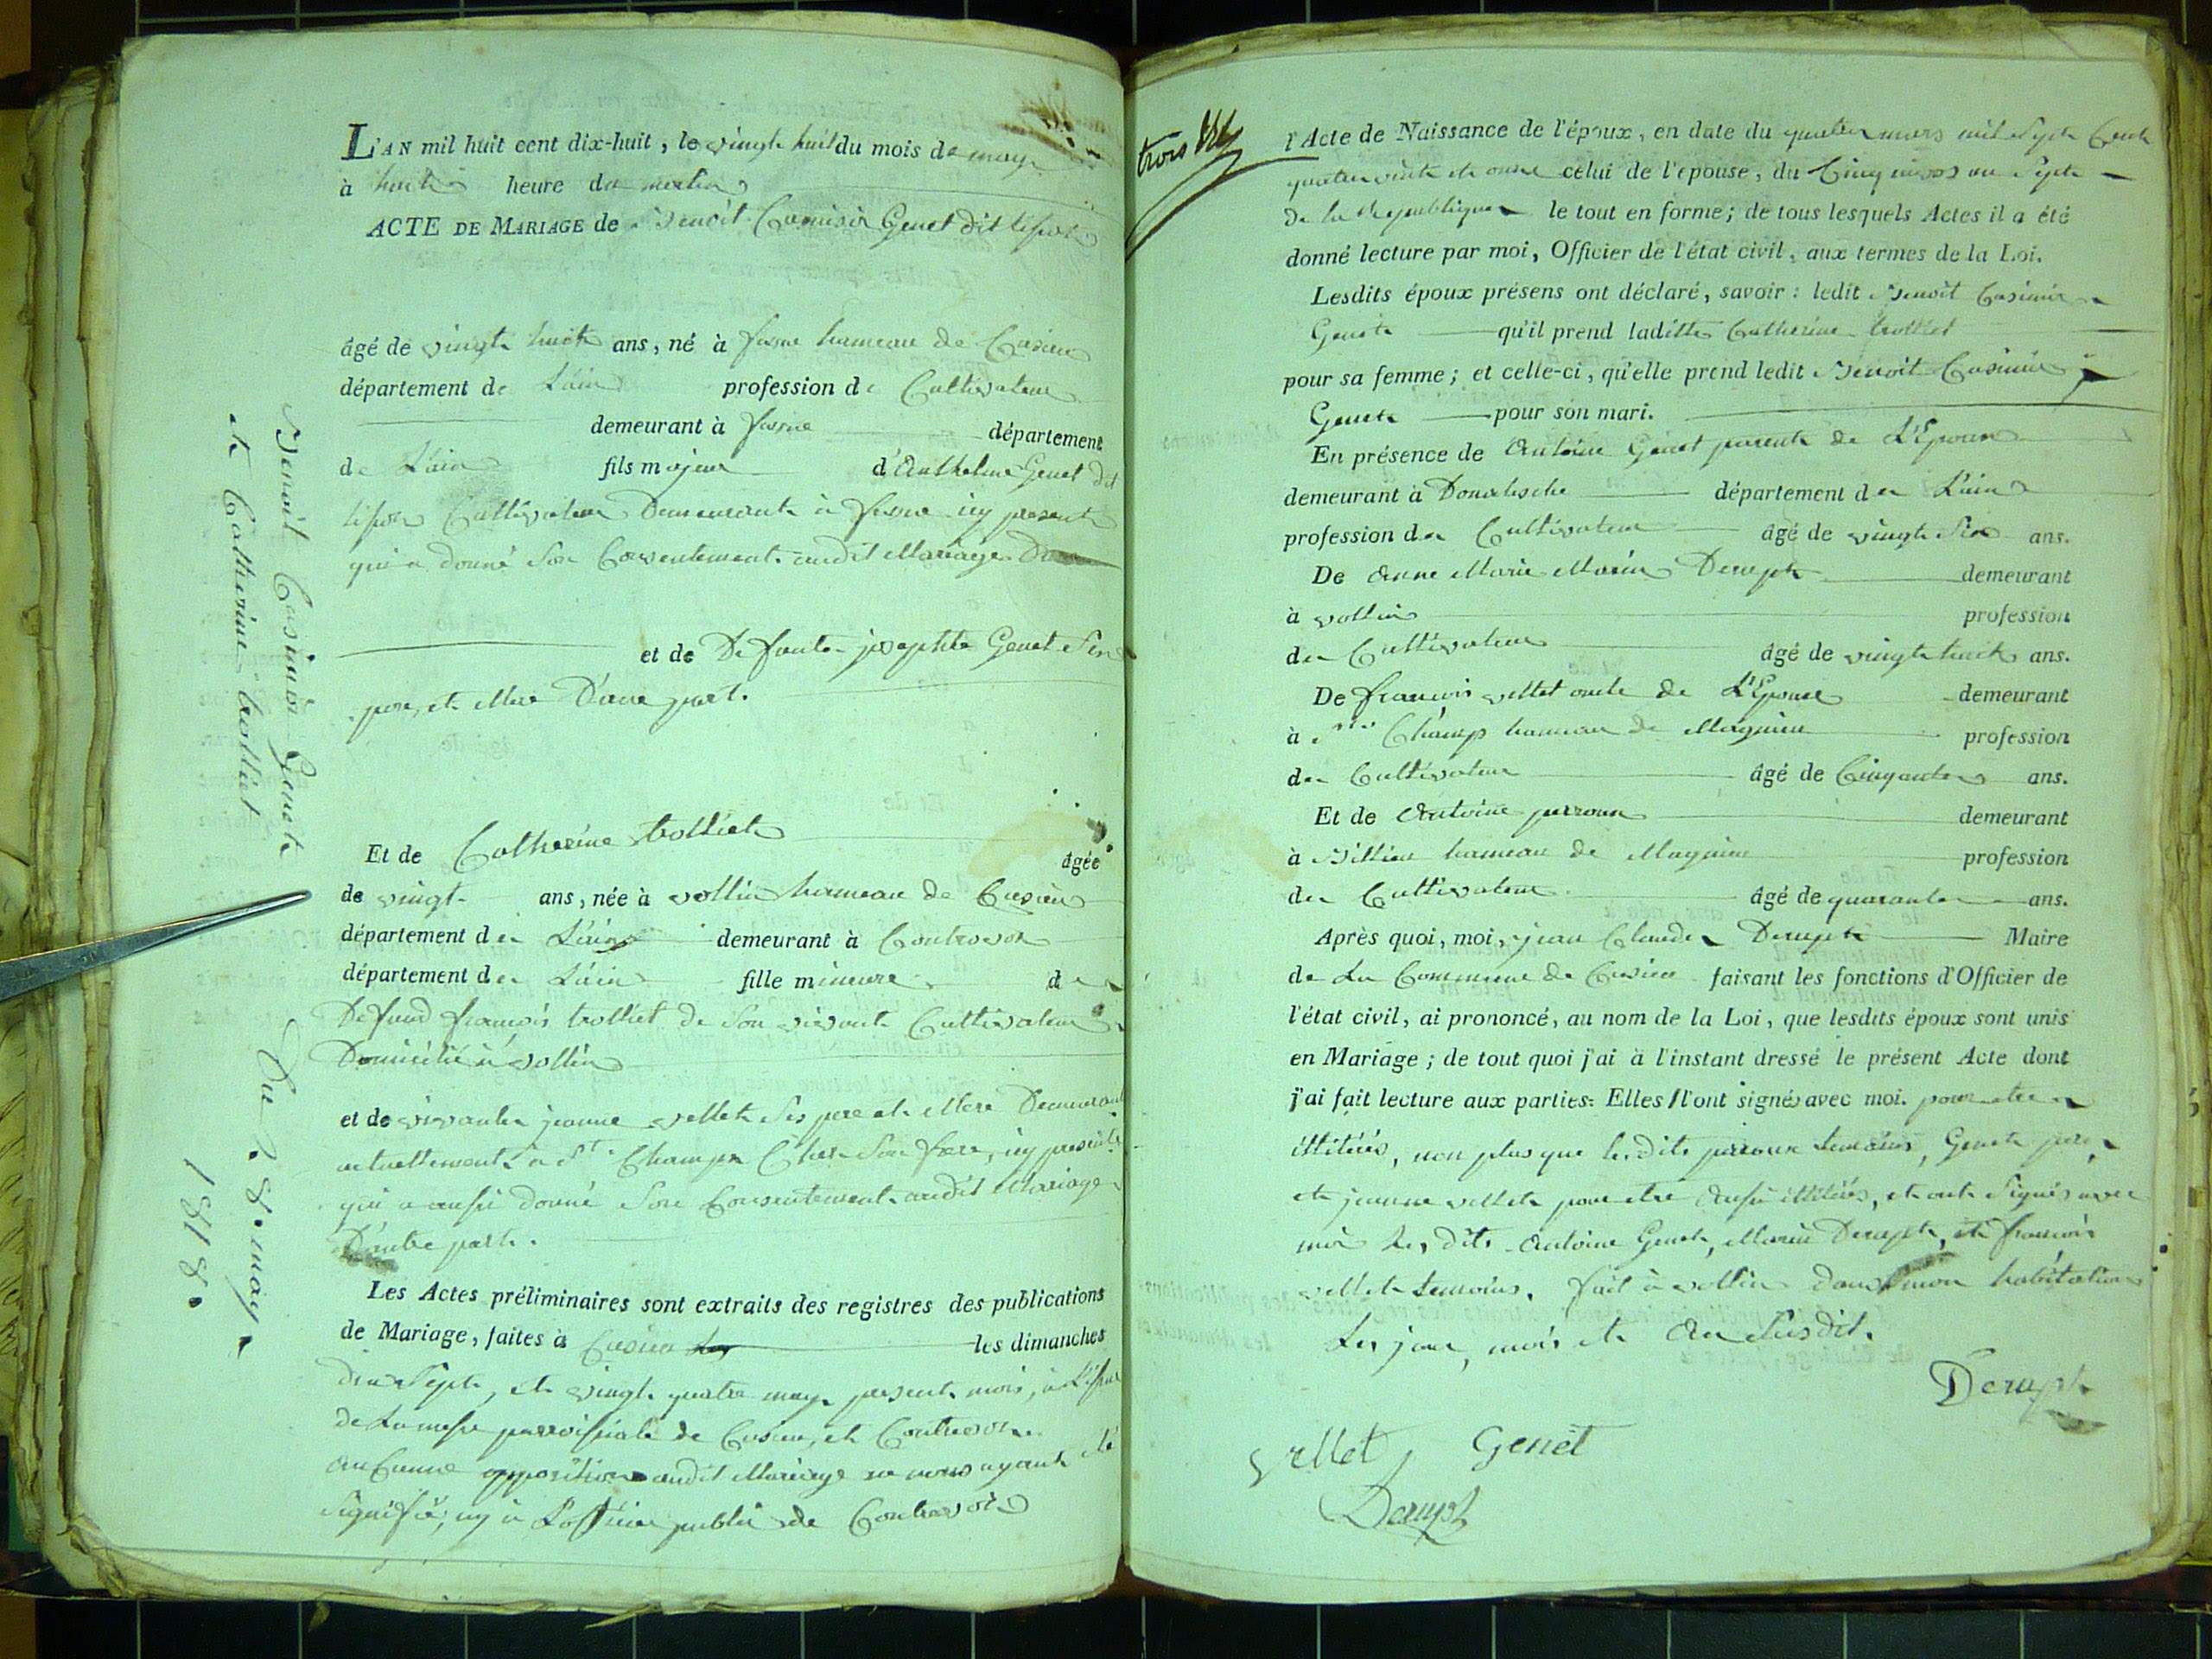 Benoit Casimir Genet
et Catherine trolliet
Du 28 may
1818.
L'AN mil huit cent dix-huit, le vingt huit du mois de may
à huit heure du matin
ACTE DE MARIAGE de Benoit Casimir Genet dit
âgé de vingt huit ans, né à hameau de Cuzieu
département de L'ain profession de Cultivateur
demeurant à département
de L'ain fils majeur d'Anthelme Genet dit
Cultivateur Demeurant à icy present
qui a donné Son Consentement audit Mariage
et de Defunte josephte Genet Ses
pere, et Mere D'une part.
Et de Catherine trolliet âgée
de vingt ans, née à vollin hameau de Cuzieu
département de L'ain demeurant à Contrevoz
département de L'ain fille mineure de
Defund françois trolliet de Son vivant Cultivateur
Domicilié à vollin
et de vivante jeanne vellet Ses pere et Mere Demeurant
actuellement à St. Champ Chez Son frere, icy presente
qui a aussi donné Son Consentement audit Mariage
D'autre part.
Les Actes préliminaires sont extraits des registres des publications
de Mariage, faites à Cusieu les dimanches
dix Sept, et vingt quatre may present mois, à L'issue
de La messe parroissiale de Cusieu, et Contrevoz.
aucunne opposition audit Mariage ne nous ayant été
Signifié, ny à L'officier public de Contrevoz
trois
l'Acte de Naissance de l'époux, en date du quatre mars mil Sept Cent
quatre vint et onze celui de l'épouse, du Cinq an Sept
de la Republique le tout en forme; de tous lesquels Actes il a été
donné lecture par moi, Officier de l'état civil, aux termes de la Loi.
Lesdits époux présens ont déclaré, savoir: ledit Benoit Casimir
Genet qu'il prend laditte Catherine trolliet
pour sa femme; et celle-ci, qu'elle prend ledit Benoit Casimir
Genet pour son mari.
En présence de Antoine Genet parent de L'Epoux
demeurant à département de L'ain
profession de Cultivateur âgé de vingt Six ans.
De Anne Marie Marin Derupt demeurant
à vollin profession
de Cultivateur âgé de vingt huit ans.
De françois vellet oncle de L'Epouse demeurant
à St. Champ hameau de Magnieu profession
de Cultivateur âgé de Cinquante ans.
Et de Antoine perroux demeurant
à Billieu hameau de Magnieu profession
de Cultivateur âgé de quarante ans.
Après quoi, moi, jean Claude Derupt Maire
de La Commune de Cusieu faisant les fonctions d'Officier de
l'état civil, ai prononcé, au nom de la Loi, que lesdits époux sont unis
en Mariage; de tout quoi j'ai à l'instant dressé le présent Acte dont
j'ai fait lecture aux parties. Elles l'ont signé avec moi. pour etre
illitérés, non plus que les dits perroux temoins, Genet pere,
et jeanne vellet pour etre aussi illitérés, et ont Signés avec
moi Les dits Antoine Genet, Marin Derupt, et françois
vellet temoins. fait à vollin dans mon habitation
Les jour, mois et An Susdit.
Derupt
vellet Genet
Derupt